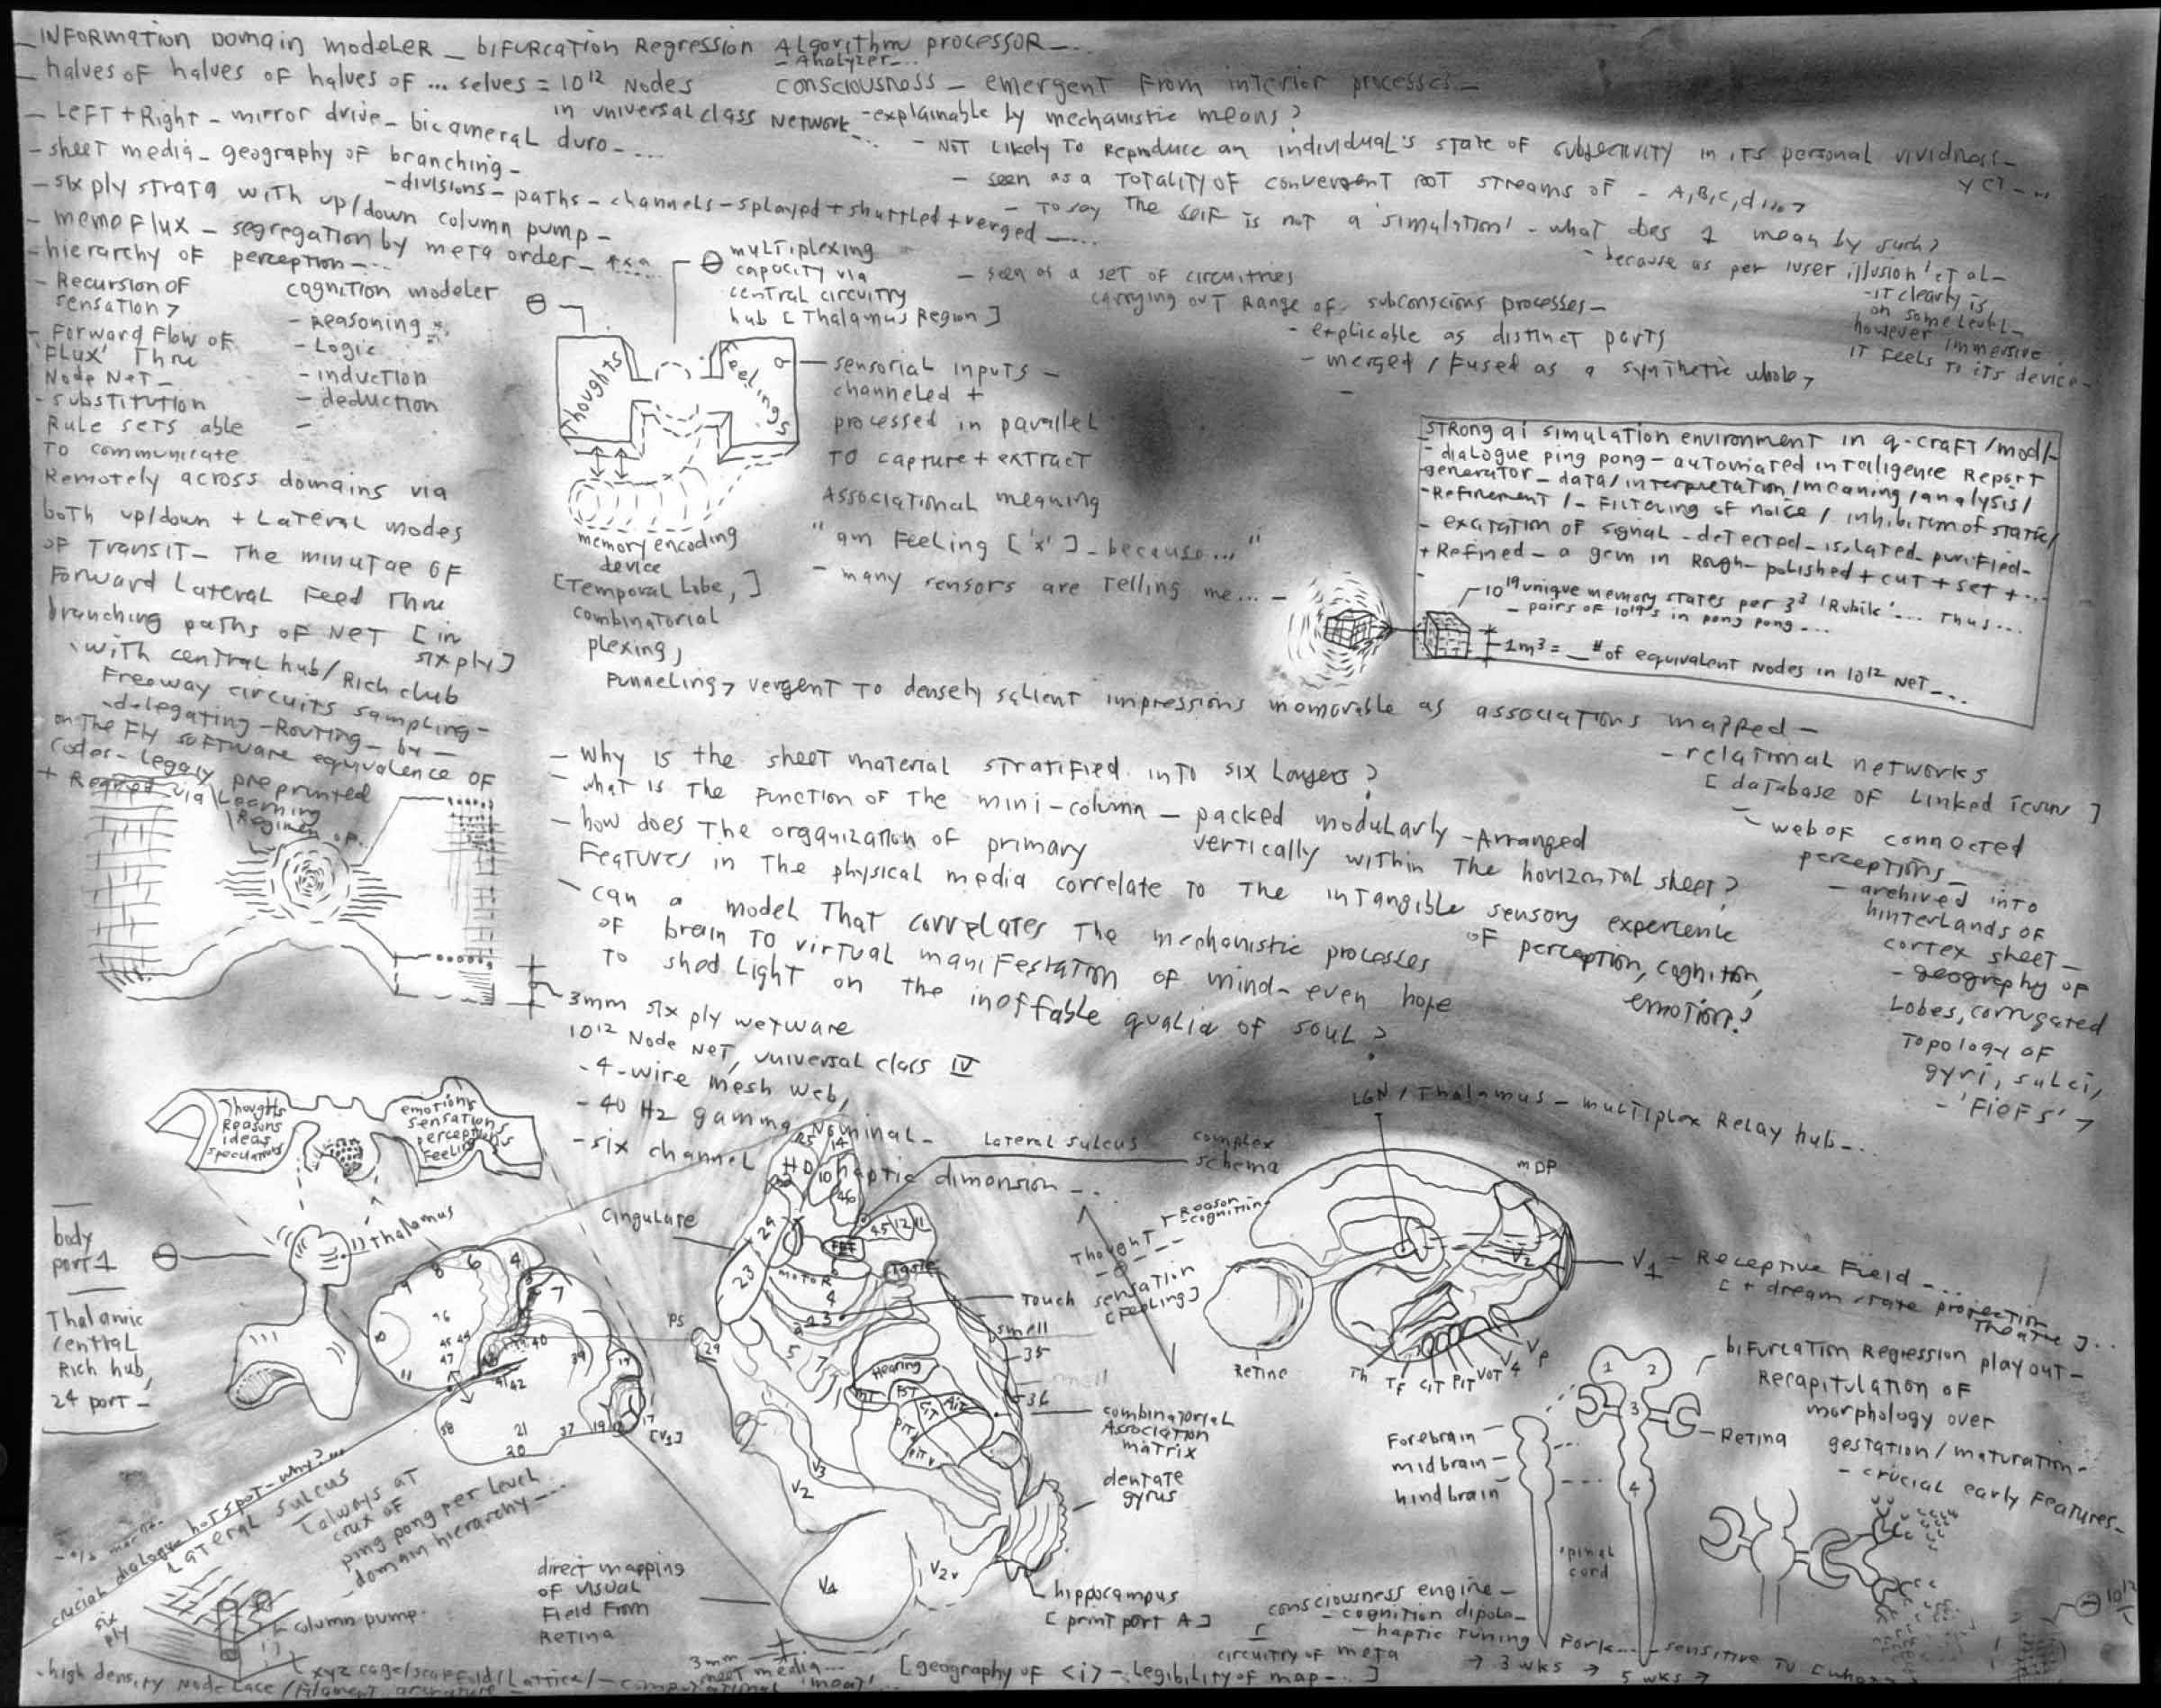 _INFORMATION DOMAIN MODELER _ bIFURCATION REGRESSION ALGORITHM PROCESSOR _...
- Analyzer_...
_ halves OF halves OF halves OF ... selves = 10¹² NODES
in universal class NETWORK_...
_ LEFT + Right - mirror drive - bicameral duro_...
- sheet media_ geography of branching_
- divisions - paths - channels - splayed + shuttled + verged _...
- six ply strata with up/down column pump -
- meme flux _ segregation by meta order_
- hierarchy of perception_...
- Recursion of sensation >
- Forward Flow OF 'FLUX' Thru Node Net_
- substitution
Rule sets able
To communicate
Remotely across domains via
both up/down + Lateral modes
of Transit_ The minutae OF
Forward Lateral Feed Thru
branching paths of NET [in six ply]
with central hub/Rich club
Freeway circuits sampling -
-delegating - Routing - by -
on The Fly software equivalence OF
codes - legacy preprinted
+ via Learning
Regimen OF
cognition modeler
- Reasoning
- Logic
- induction
- deduction
CONSCIOUSNESS _ emergent From interior processes _
- explainable by mechanistic means?
- NOT likely To Reproduce an individual's state of subjectivity in its personal vividness -
yet _...
- seen as a TOTALITY OF convergent streams of - A,B,C,d
- To say The self is not a 'simulation' - what does I mean by such?
- because as per 'user illusion' et al -
- it clearly is
on some level -
however immersive
it feels To its device -
- seen as a set of circuitries
carrying out Range of subconscious processes -
- explicable as distinct parts
- merged / Fused as a synthetic whole >
multiplexing
capacity via
central circuitry
hub [Thalamus Region]
Thoughts
Feelings
sensorial inputs -
channeled +
processed in parallel
TO capture + extract
Associational meaning
"am Feeling ['x'] - because..."
- many sensors are Telling me... -
memory encoding
device
[Temporal Lobe,]
combinatorial
plexing,
Funneling > vergent To densely salient impressions memorable as associations mapped -
- relational networks
[database OF Linked Items]
- web OF connected
perceptions_
- archived into
hinterlands of
cortex sheet -
- geography of
Lobes, corrugated
Topology OF
gyri, sulci,
- 'Fiefs' >
STRONG ai simulation environment in q-craft/mod/-
- dialogue ping pong - automated intelligence Report
generator - data/interpretation/meaning/analysis/
- Refinement / - Filtering of noise / inhibition of static/
- excitation of signal - detected - isolated - purified -
+ Refined - a gem in Rough - polished + cut + set + ...
10¹⁹ unique memory states per 3³ 'Rubik'... Thus...
- pairs of 10¹⁹'s in pong pong...
1m³ = _ # of equivalent Nodes in 10¹² NET _...
- why is the sheet material stratified into six Layers?
- what is The Function of The mini-column - packed modularly - Arranged
vertically within The horizontal sheet?
- how does The organization of primary
Features in The physical media correlate to The intangible sensory experience
of perception, cognition,
emotion?
- can a model That correlates The mechanistic processes
of brain TO virtual manifestation of mind - even hope
To shed Light on the ineffable qualia of soul?
3mm six ply wetware
10¹² Node NeT, universal class IV
- 4-wire mesh web,
- 40 Hz gamma Nominal -
- six channel HD haptic dimension_...
Thoughts
Reasons
ideas
speculations
emotions
sensations
perceptions
Feelings
body
port 1
Thalamus
Thalamic
central
Rich hub,
24 port -
crucial dialogue hotspot - why?...
LATERAL sulcus
[always at
crux of
ping pong per level
- domain hierarchy -...
six
ply
column pump
17
[V1]
cingulate
Lateral sulcus
complex
schema
Thought
Reason
- cognition
sensation
[feeling]
motor
Taste
Touch
smell
- 35
36
PS
Hearing
V3
V2
V4
V2v
combinatorial
Association
matrix
dentate
gyrus
hippocampus
[print port A]
direct mapping
of visual
Field From
Retina
3mm
LGN / Thalamus - multiplex Relay hub_...
MDP
V2
V1 - Receptive Field -...
[+ dream state projection
Theatre]...
Retina
Th TF CIT PIT VOT V4 VP
bifurcation Regression play out -
Recapitulation of
morphology over
gestation/maturation -
- crucial early Features -
1 2
3
4
Retina
Forebrain -
midbrain -
hindbrain -
spinal
cord
consciousness engine -
- cognition dipole -
- haptic tuning Fork...
- sensitive TO
circuitry of meta
→ 3 wks → 5 wks →
- high density Node Lace / Filament
xyz cage/scaffold/Lattice/ -
[geography of <i> - Legibility of map -..]